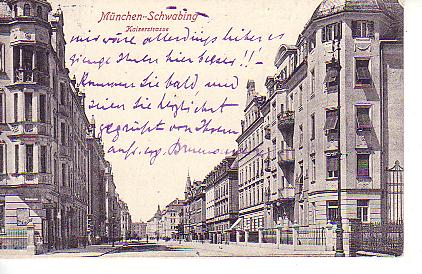 München-Schwabing
Kaiserstrasse
mir wäre allerdings lieber es
ginge Ihnen hier besser!!–
Kommen Sie bald und
seien Sie herzlichst
gegrüßt von Ihrem
aufr.